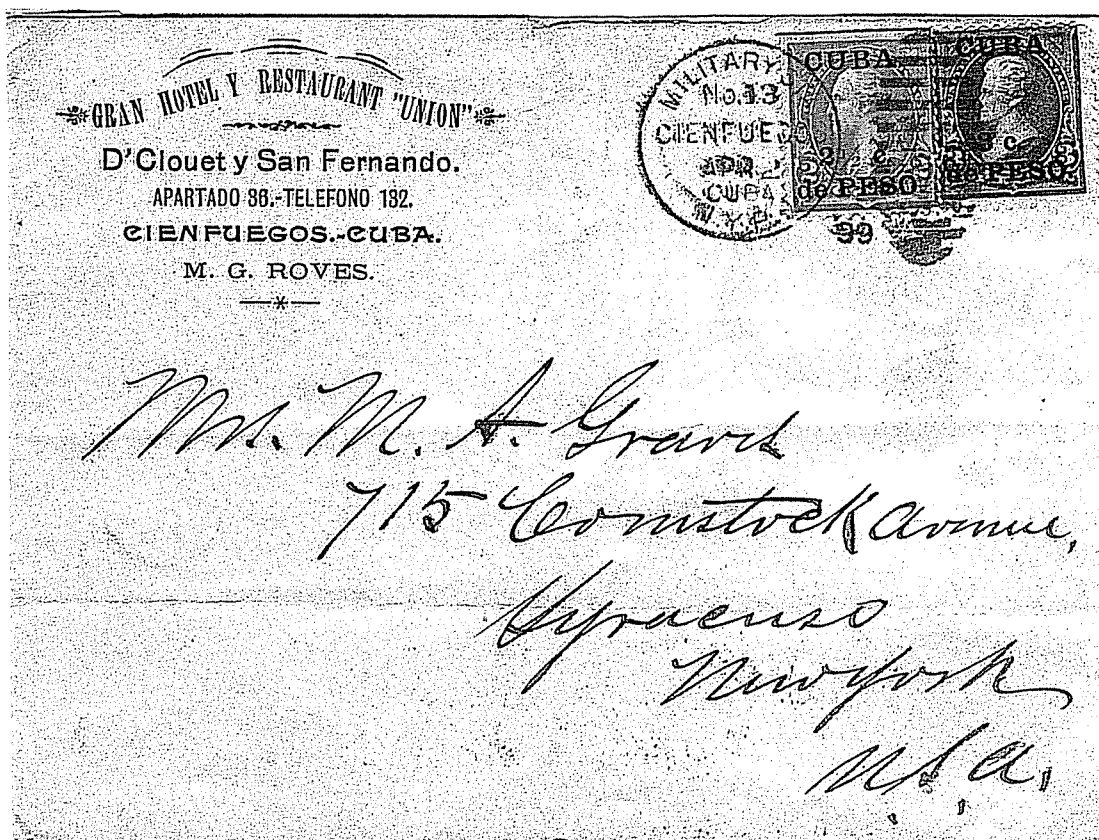 GRAN HOTEL Y RESTAURANT "UNION"
D'Clouet y San Fernando.
APARTADO 36.-TELEFONO 132.
CIENFUEGOS.-CUBA.
M. G. ROVES.
MILITARY
No. 13
CIENFUEGO
APR.
CUBA
99
CUBA
2 c.
de PESO
CUBA
3 c.
de PESO
Mrs. M. A.
715 Comstock Avenue,
Syracuse
New York
U.S.A.